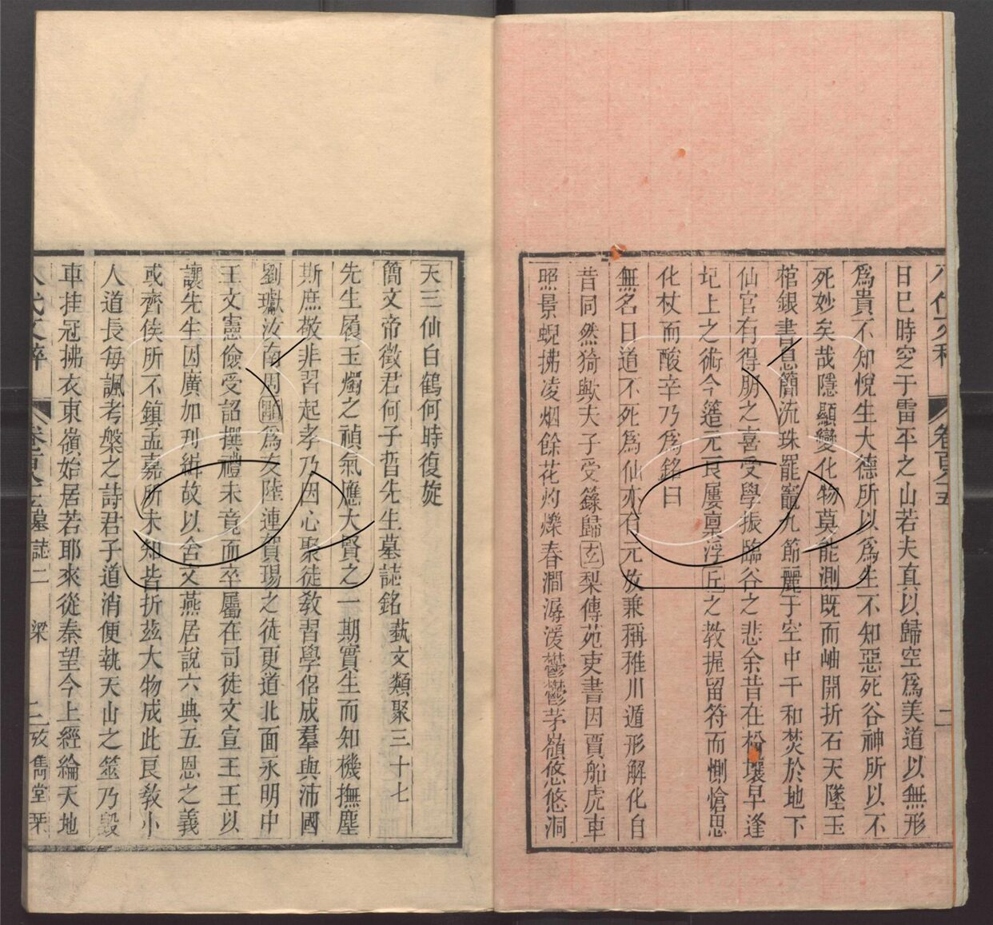 日巳時窆于雷平之山若夫真以歸空爲美道以無形
爲貴不知悅生大德所以爲生不知惡死谷神所以不
死妙矣哉隱顯變化物莫能測既而岫開折石天墜玉
棺銀書息簡流珠罷竈九節麗于空中千和焚於地下
仙官有得朋之喜受學振臨谷之悲余昔在枌壤早逢
圯上之術今簉元良屢稟浮丘之教握留符而惻愴思
化杖而酸辛乃爲銘曰
無名曰道不死爲仙亦有元放兼稱稚川遁形解化自
昔同然猗歟夫子受籙歸玄梨傳苑吏書因賈船虎車
照景蜺拂凌烟餘花灼爍春澗潺湲鬱鬱茅嶺悠悠洞
天三仙白鶴何時復旋
簡文帝徵君何子晳先生墓誌銘 藝文類聚三十七
先生履玉燭之禎氣應大賢之一期實生而知機撫塵
斯庶敬非習起孝乃因心聚徒敎習學侶成羣與沛國
劉瓛汝南周顒爲友陸璉賀瑒之徒更道北面永明中
王文憲儉受詔撰禮未竟而卒屬在司徒文宣王王以
讓先生因廣加刋緝故以含文燕居說六典五恩之義
或齊俟所不鎮孟嘉所未知皆折茲大物成此良敎小
人道長每諷考槃之詩君子道消便執天山之筮乃毀
車挂冠拂衣東嶺始居若耶來從秦望今上經綸天地
八代文粹 卷 墓誌二 梁 二 攷雋堂栞